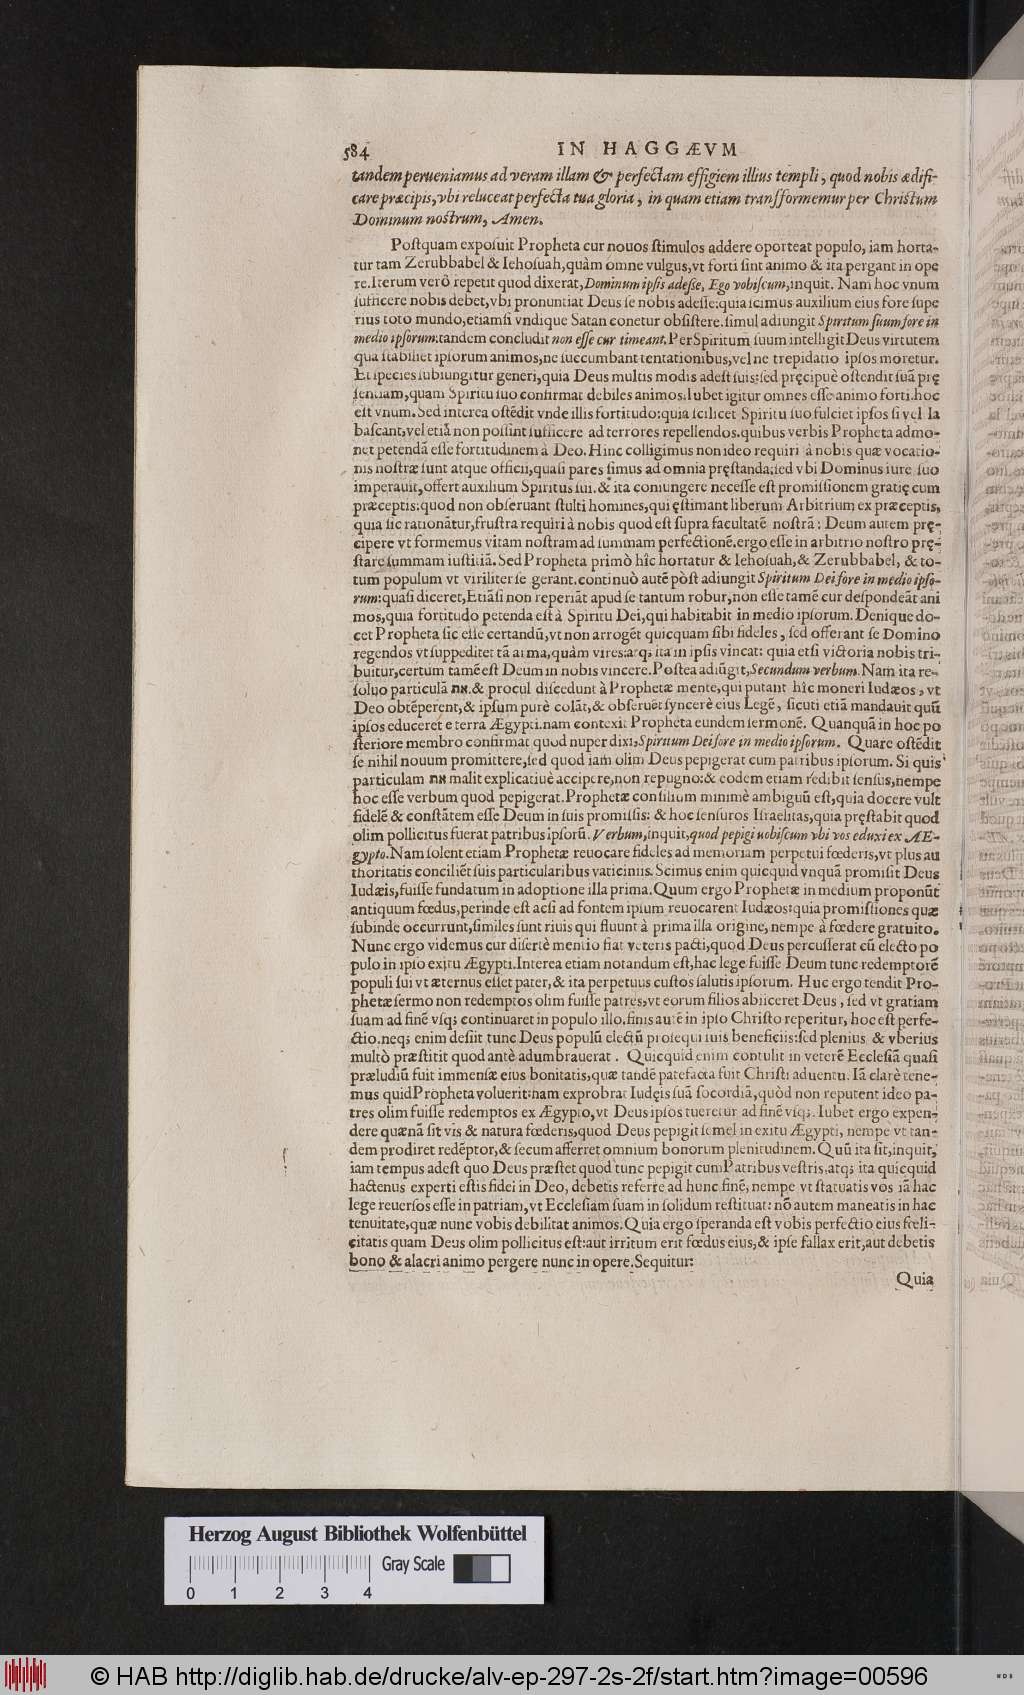 584 IN HAGGÆVM
tandem perueniamus ad veram illam & perfectam effigiem illius templi, quod nobis ædifi-
care præcipis, vbi reluceat perfecta tua gloria, in quam etiam transſformemur per Christum
Dominum nostrum, Amen.
Poſtquam expoſuit Propheta cur nouos ſtimulos addere oporteat populo, iam horta-
tur tam Zerubbabel & Iehoſuah, quàm omne vulgus, vt forti ſint animo & ita pergant in ope
re. Iterum verò repetit quod dixerat, Dominum ipſis adeſſe, Ego vobiſcum, inquit. Nam hoc vnum
ſufficere nobis debet, vbi pronuntiat Deus ſe nobis adeſſe: quia ſcimus auxilium eius fore ſupe
rius toto mundo, etiamſi vndique Satan conetur obſiſtere. ſimul adiungit Spiritum ſuum fore in
medio ipſorum: tandem concludit non eſſe cur timeant. Per Spiritum ſuum intelligit Deus virtutem
qua ſtabiliet ipſorum animos, ne ſuccumbant tentationibus, vel ne trepidatio ipſos moretur.
Et ſpecies ſubiungitur generi, quia Deus multis modis adeſt ſuis: ſed pręcipuè oſtendit ſuā prę
ſentiam, quam Spiritu ſuo confirmat debiles animos. Iubet igitur omnes eſſe animo forti. hoc
eſt vnum. Sed interea oſtēdit vnde illis fortitudo: quia ſcilicet Spiritu ſuo fulciet ipſos ſi vel la
baſcant, vel etiā non poſſint ſufficere ad terrores repellendos. quibus verbis Propheta admo-
net petendā eſſe fortitudinem à Deo. Hinc colligimus non ideo requiri à nobis quæ vocatio-
nis noſtræ ſunt atque officii, quaſi pares ſimus ad omnia pręſtanda: ſed vbi Dominus iure ſuo
imperauit, offert auxilium Spiritus ſui. & ita coniungere neceſſe eſt promiſſionem gratię cum
præceptis: quod non obſeruant ſtulti homines, qui ęſtimant liberum Arbitrium ex præceptis,
quia ſic rationātur, fruſtra requiri à nobis quod eſt ſupra facultatē noſtrā: Deum autem prę-
cipere vt formemus vitam noſtram ad ſummam perfectionē. ergo eſſe in arbitrio noſtro prę-
ſtare ſummam iuſtitiā. Sed Propheta primò hîc hortatur & Iehoſuah, & Zerubbabel, & to-
tum populum vt viriliter ſe gerant. continuò autē pòſt adiungit Spiritum Dei fore in medio ipſo-
rum: quaſi diceret, Etiāſi non reperiāt apud ſe tantum robur, non eſſe tamē cur deſpondeāt ani
mos, quia fortitudo petenda eſt à Spiritu Dei, qui habitabit in medio ipſorum. Denique do-
cet Propheta ſic eſſe certandū, vt non arrogēt quicquam ſibi fideles, ſed offerant ſe Domino
regendos vt ſuppeditet tā arma, quàm vires: atq; ita in ipſis vincat: quia etſi victoria nobis tri-
buitur, certum tamē eſt Deum in nobis vincere. Poſtea adiūgit, Secundum verbum. Nam ita re-
ſoluo particulā את. & procul diſcedunt à Prophetæ mente, qui putant hîc moneri Iudæos, vt
Deo obtēperent, & ipſum purè colāt, & obſeruēt ſyncerè eius Legē, ſicuti etiā mandauit quū
ipſos educeret e terra Ægypti. nam contexit Propheta eundem ſermonē. Quanquā in hoc po
ſteriore membro confirmat quod nuper dixi, Spiritum Dei fore in medio ipſorum. Quare oſtēdit
ſe nihil nouum promittere, ſed quod iam olim Deus pepigerat cum patribus ipſorum. Si quis
particulam את malit explicatiuè accipere, non repugno: & eodem etiam redibit ſenſus, nempe
hoc eſſe verbum quod pepigerat. Prophetæ conſilium minimè ambiguū eſt, quia docere vult
fidelē & conſtātem eſſe Deum in ſuis promiſſis: & hoc ſenſuros Iſraelitas, quia pręſtabit quod
olim pollicitus fuerat patribus ipſorū. Verbum, inquit, quod pepigi uobiſcum vbi vos eduxi ex Æ-
gypto. Nam ſolent etiam Prophetæ reuocare fideles ad memoriam perpetui fœderis, vt plus au
thoritatis conciliēt ſuis particularibus vaticiniis. Scimus enim quicquid vnquā promiſit Deus
Iudæis, fuiſſe fundatum in adoptione illa prima. Quum ergo Prophetæ in medium proponūt
antiquum fœdus, perinde eſt acſi ad fontem ipſum reuocarent Iudæos: quia promiſſiones quæ
ſubinde occurrunt, ſimiles ſunt riuis qui fluunt à prima illa origine, nempe à fœdere gratuito.
Nunc ergo videmus cur diſertè mentio fiat veteris pacti, quod Deus percuſſerat cū electo po
pulo in ipſo exitu Ægypti. Interea etiam notandum eſt, hac lege fuiſſe Deum tunc redemptorē
populi ſui vt æternus eſſet pater, & ita perpetuus cuſtos ſalutis ipſorum. Huc ergo tendit Pro-
phetæ ſermo non redemptos olim fuiſſe patres, vt eorum filios abiiceret Deus, ſed vt gratiam
ſuam ad finē vſq; continuaret in populo illo. finis autē in ipſo Chriſto reperitur, hoc eſt perfe-
ctio. neq; enim deſiit tunc Deus populū electū proſequi ſuis beneficiis: ſed plenius & vberius
multò præſtitit quod antè adumbrauerat. Quicquid enim contulit in veterē Eccleſiā quaſi
præludiū fuit immenſæ eius bonitatis, quæ tandē patefacta fuit Chriſti aduentu. Iā clarè tene-
mus quid Propheta voluerit: nam exprobrat Iudęis ſuā ſocordiā, quòd non reputent ideo pa-
tres olim fuiſſe redemptos ex Ægypto, vt Deus ipſos tueretur ad finē vſq;. Iubet ergo expen-
dere quænā ſit vis & natura fœderis, quod Deus pepigit ſemel in exitu Ægypti, nempe vt tan-
dem prodiret redēptor, & ſecum afferret omnium bonorum plenitudinem. Quū ita ſit, inquit,
iam tempus adeſt quo Deus præſtet quod tunc pepigit cum Patribus veſtris, atq; ita quicquid
hactenus experti eſtis fidei in Deo, debetis referre ad hunc finē, nempe vt ſtatuatis vos iā hac
lege reuerſos eſſe in patriam, vt Eccleſiam ſuam in ſolidum reſtituat: nō autem maneatis in hac
tenuitate, quæ nunc vobis debilitat animos. Quia ergo ſperanda eſt vobis perfectio eius fœli-
citatis quam Deus olim pollicitus eſt: aut irritum erit fœdus eius, & ipſe fallax erit, aut debetis
bono & alacri animo pergere nunc in opere. Sequitur:
Quia
Herzog August Bibliothek Wolfenbüttel
Gray Scale
0 1 2 3 4
© HAB http://diglib.hab.de/drucke/alv-ep-297-2s-2f/start.htm?image=00596